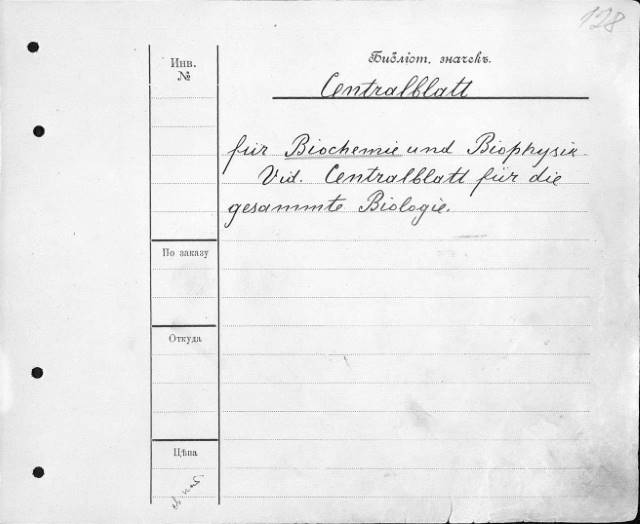 128
Инв.
№
Библіот. значекъ.
Centralblatt
für Biochemie und Biophysik
Vid. Centralblatt für die
gesammte Biologie.
По заказу
Откуда
Цѣна